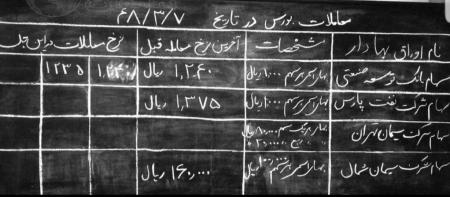 معاملات بورس در تاریخ ۴۸/۳/۷
نام اوراق بهادار مشخصات آخرین نرخ معامله قبل نرخ معاملات در این جلسه
سهام بانک توسعه صنعتی بهای اسمی هر سهم ۱,۰۰۰ ریال ۱,۲۴۰ ریال ۱,۲۴۰ ۱۲۳۵
سهام شرکت نفت پارس بهای اسمی هر سهم ۱,۰۰۰ ریال ۱,۳۷۵ ریال
سهام شرکت سیمان تهران بهای هر یک سهم ۱۰,۰۰۰ ریال
سهام شرکت سیمان شمال بهای اسمی هر سهم ۱۰,۰۰۰ ریال ۱۶,۰۰۰ ریال